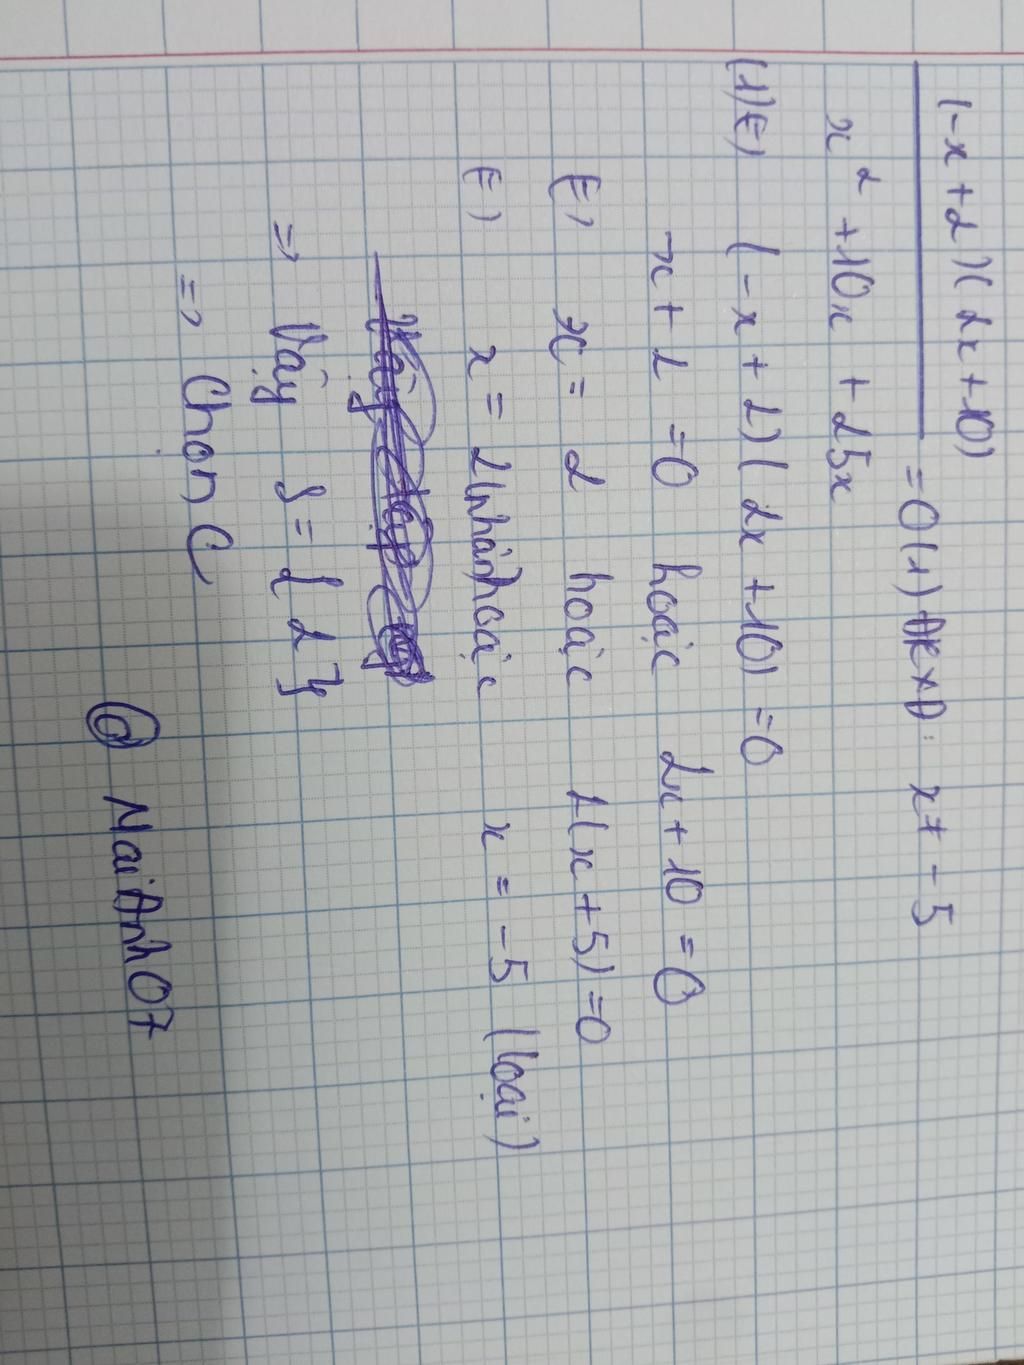 (-x+2)(2x+10)
= 0 (1) ĐKXĐ: x ≠ -5
x² + 10x + 25x
(1) (=) (-x+2)(2x+10) = 0
-x+2 = 0 hoặc 2x+10 = 0
(=) x = 2 hoặc 2(x+5) = 0
(=) x = 2 (nhận) hoặc x = -5 (loại)
=> Vậy S = { 2 }
=> Chọn C
@ MaiAnh07